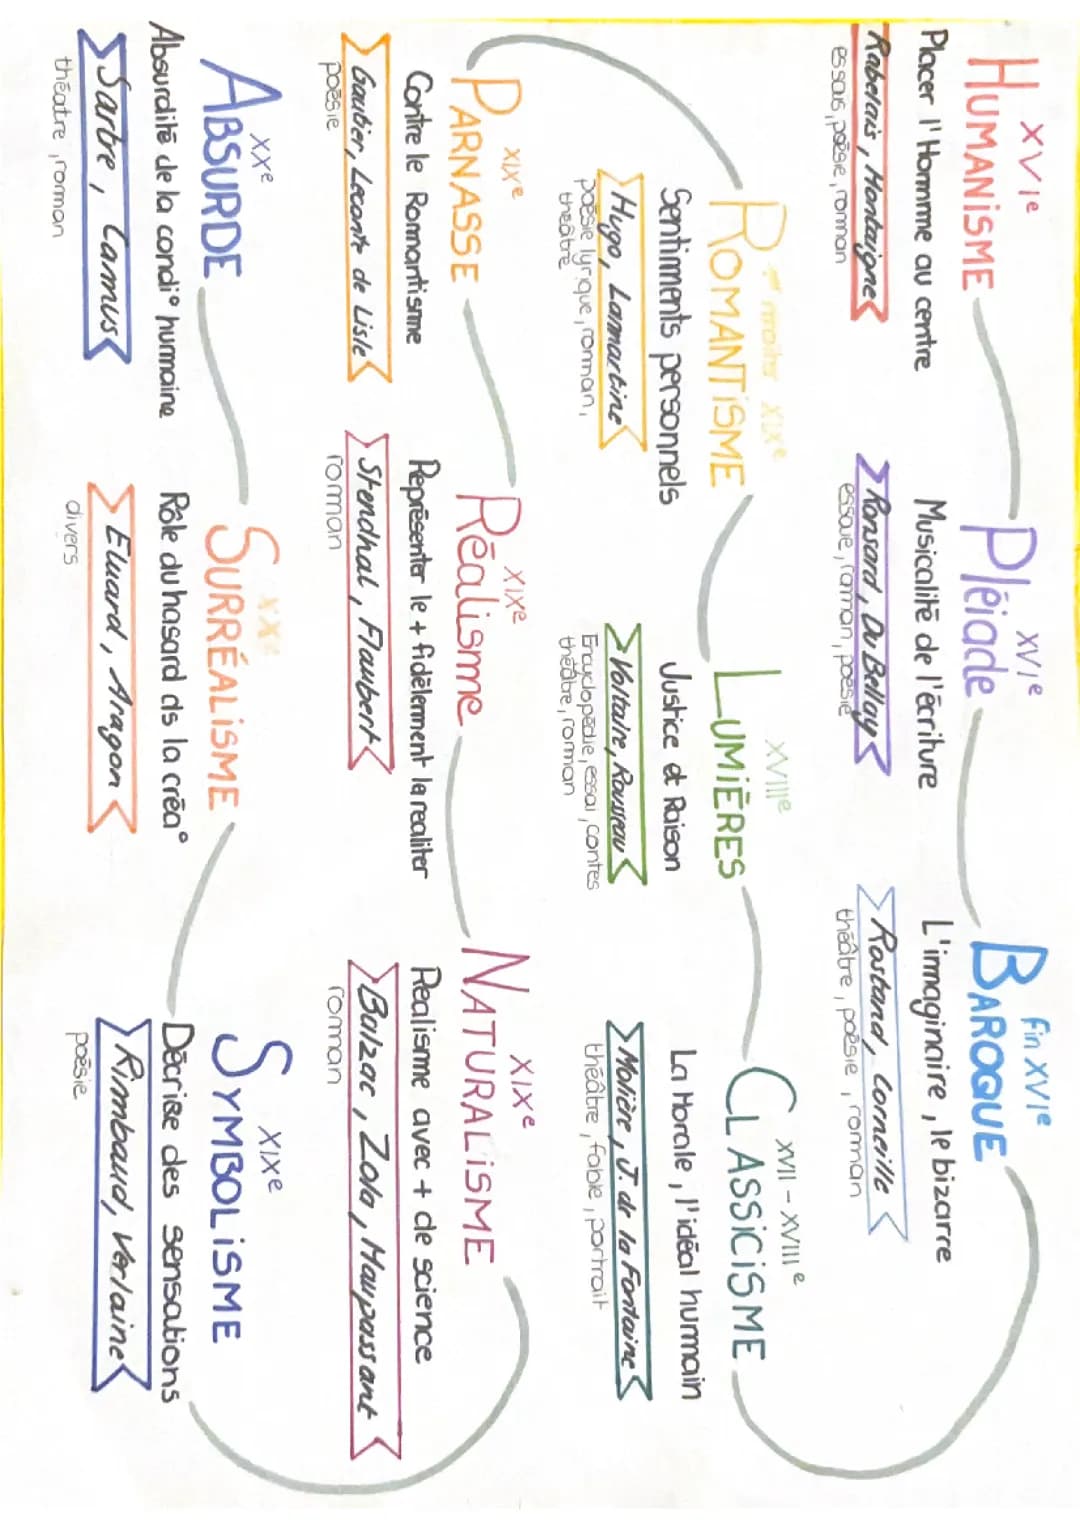 XVIe
HUMANISME
Placer l'Homme au centre
Rabelais, Montaigne
essais, poësie, roman
XVIe
Pléiade
Musicalité de l'écriture
Ronsard, Du Bellay
essaie, roman, poésie
fin XVIe
BAROQUE
L'imaginaire, le bizarre
Rostand, Corneille
théâtre, poësie, roman
XVII - XVIIIe
CLASSICISME
La Morale, l'idéal humain
Molière, J. de la Fontaine
théâtre, fable, portrait
XVIIIe
LUMIÈRES
Justice et Raison
Voltaire, Rousseau
Encyclopédie, essai, contes
théâtre, roman
XIXe
ROMANTISME
Sentiments personnels
Hugo, Lamartine
poésie lyrique, roman,
théâtre
XIXe
PARNASSE
Contre le Romantisme
Gautier, Leconte de Lisle
poësie
XIXe
Réalisme
Représenter le + fidèlement la realiter
Stendhal, Flaubert
roman
XIXe
NATURALISME
Realisme avec + de science
Balzac, Zola, Maupassant
roman
XIXe
SYMBOLISME
Décrise des sensations
Rimbaud, Verlaine
poësie
XXe
SURRÉALISME
Rôle du hasard ds la créa°
Eluard, Aragon
divers
XXe
ABSURDE
Absurdité de la condi° humaine
Sartre, Camus
théatre, roman